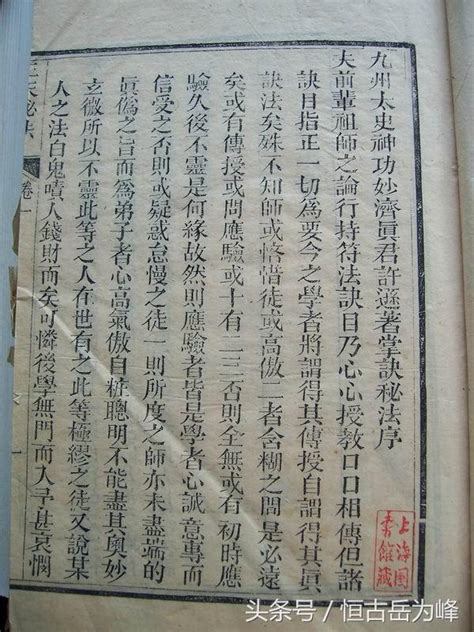 九州太史神功妙濟眞君許遜著掌訣秘法序
夫前輩祖師之論行持符法訣目乃心心授教口口相傳但諸
訣目指正一切爲要今之學者將謂得其傳授自謂得其眞
訣法矣殊不知師或悋惜徒或高傲二者含糊之間是必遠
矣或有傳授或問應驗或十有二三否則全無或有初時應
驗久後不靈是何緣故然則應驗者皆是學者心誠意專而
信受之否則或疑惑怠慢之徒一則所度之師亦未盡端的
眞僞之旨而爲弟子者心高氣傲自粧聰明不能盡其奧妙
玄微所以不靈此等之人在世有之此等極繆之徒又說某
人之法白鬼嘖人錢財而矣可憐後學無門而入予甚哀憫
秘法
卷一
一
上海圖
書館藏
头条号/恒古岳为峰